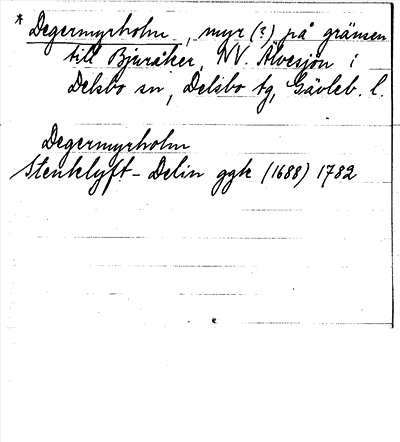 * Degermyrholm, myr (?) på gränsen
till Bjuråker, NV. Älvesjön i
Delsbo sn, Delsbo tg, Gävleb. l.
Degermyrholm
Stenklyft - Delin ggk (1688) 1782